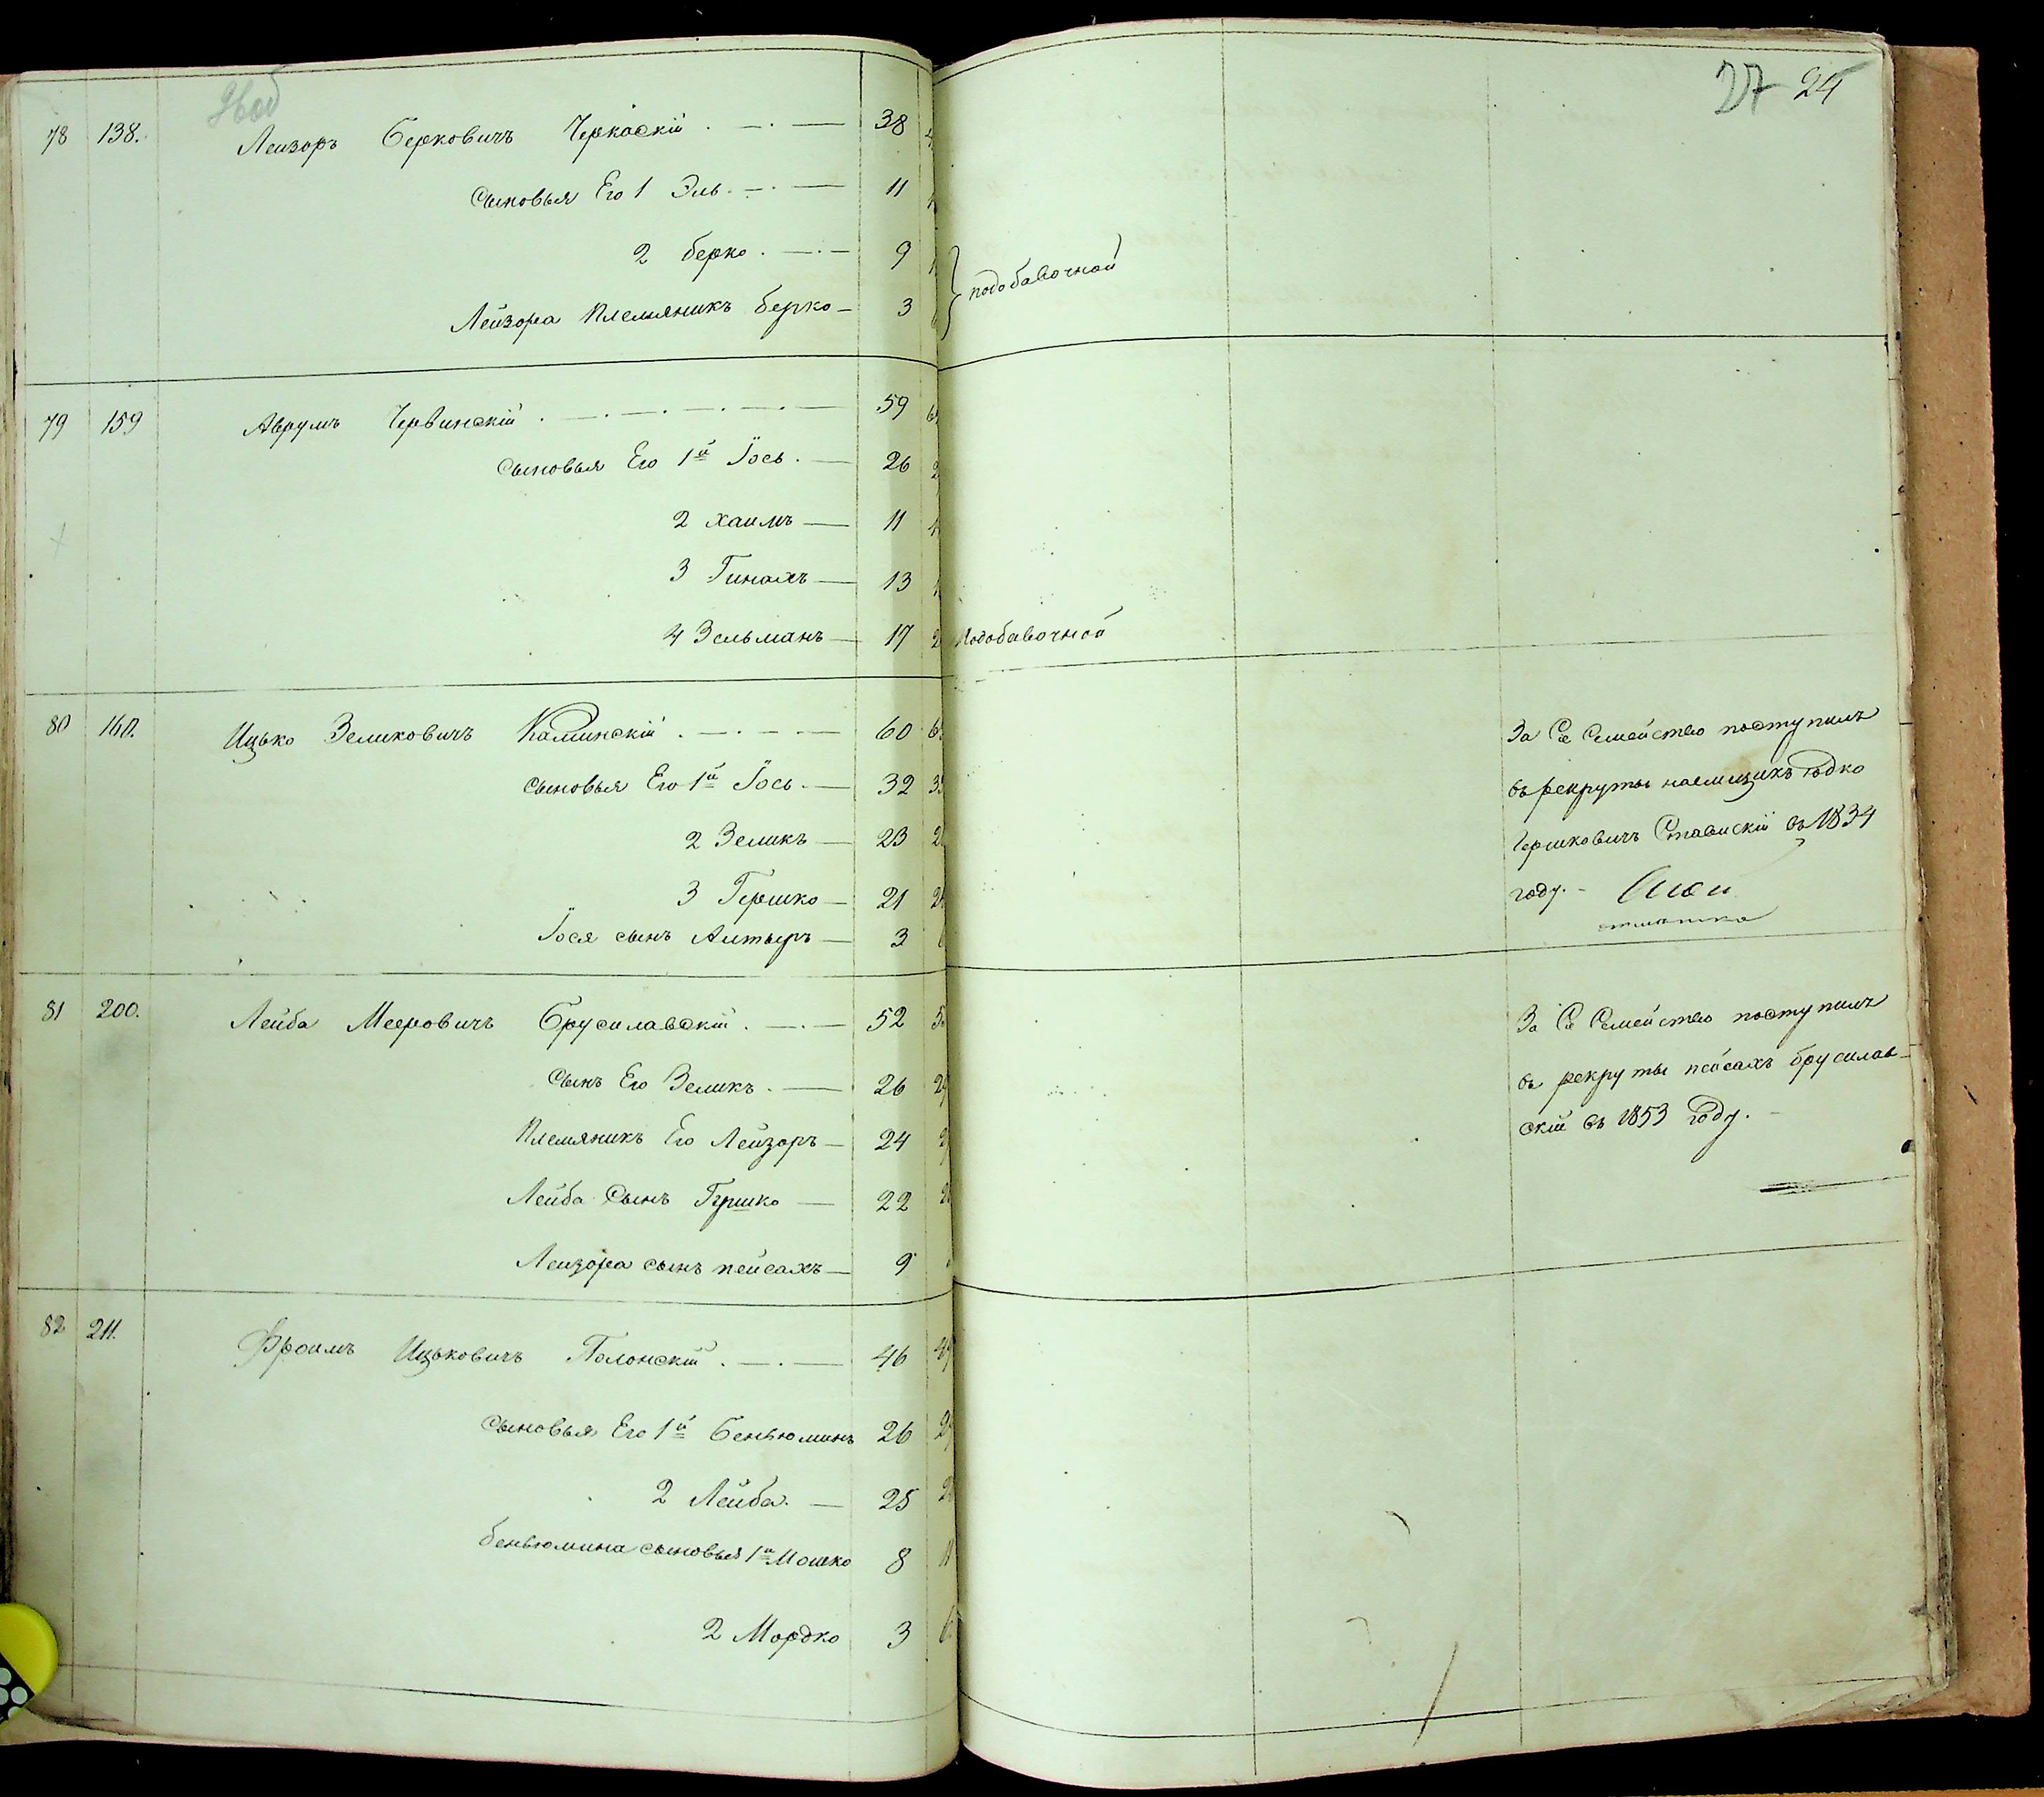 27 24
78 138. Лейзоръ Берковичъ Черкаскій 38
Сыновья Его 1 Эль 11
2 Берко 9
Лейзора Племяникъ Берко 3
подобавочной
79 159 Аврумъ Червинскій 59
Сыновья Его 1й Іось 26
2 Хаимъ 11
3 Пинахъ 13
4 Зельманъ 17 подобавочной
80 160. Ицько Зеликовичъ Каминскій 60
Сыновья Его 1й Іось 32
2 Зеликъ 23
3 Гершко 21
Іося сынъ Алтыръ 3
За Се Семейство поступилъ
въ рекруты наемщикъ Юдко
Гершковичъ Ставискій въ 1834
году.
81 200. Лейба Мееровичъ Брусилавскій 52
Сынъ Его Зеликъ 26
Племяникъ Его Лейзоръ 24
Лейба Сынъ Гершко 22
Лейзора сынъ пейсахъ 9
За Се Семейство поступилъ
въ рекруты пейсахъ брусилав-
скій въ 1853 году.
82 211. Фроимъ Ицьковичъ Полонскій 46
Сыновья Его 1й Беньюминъ 26
2 Лейба 25
Беньюмина сыновья 1й Мошко 8
2 Мордко 3